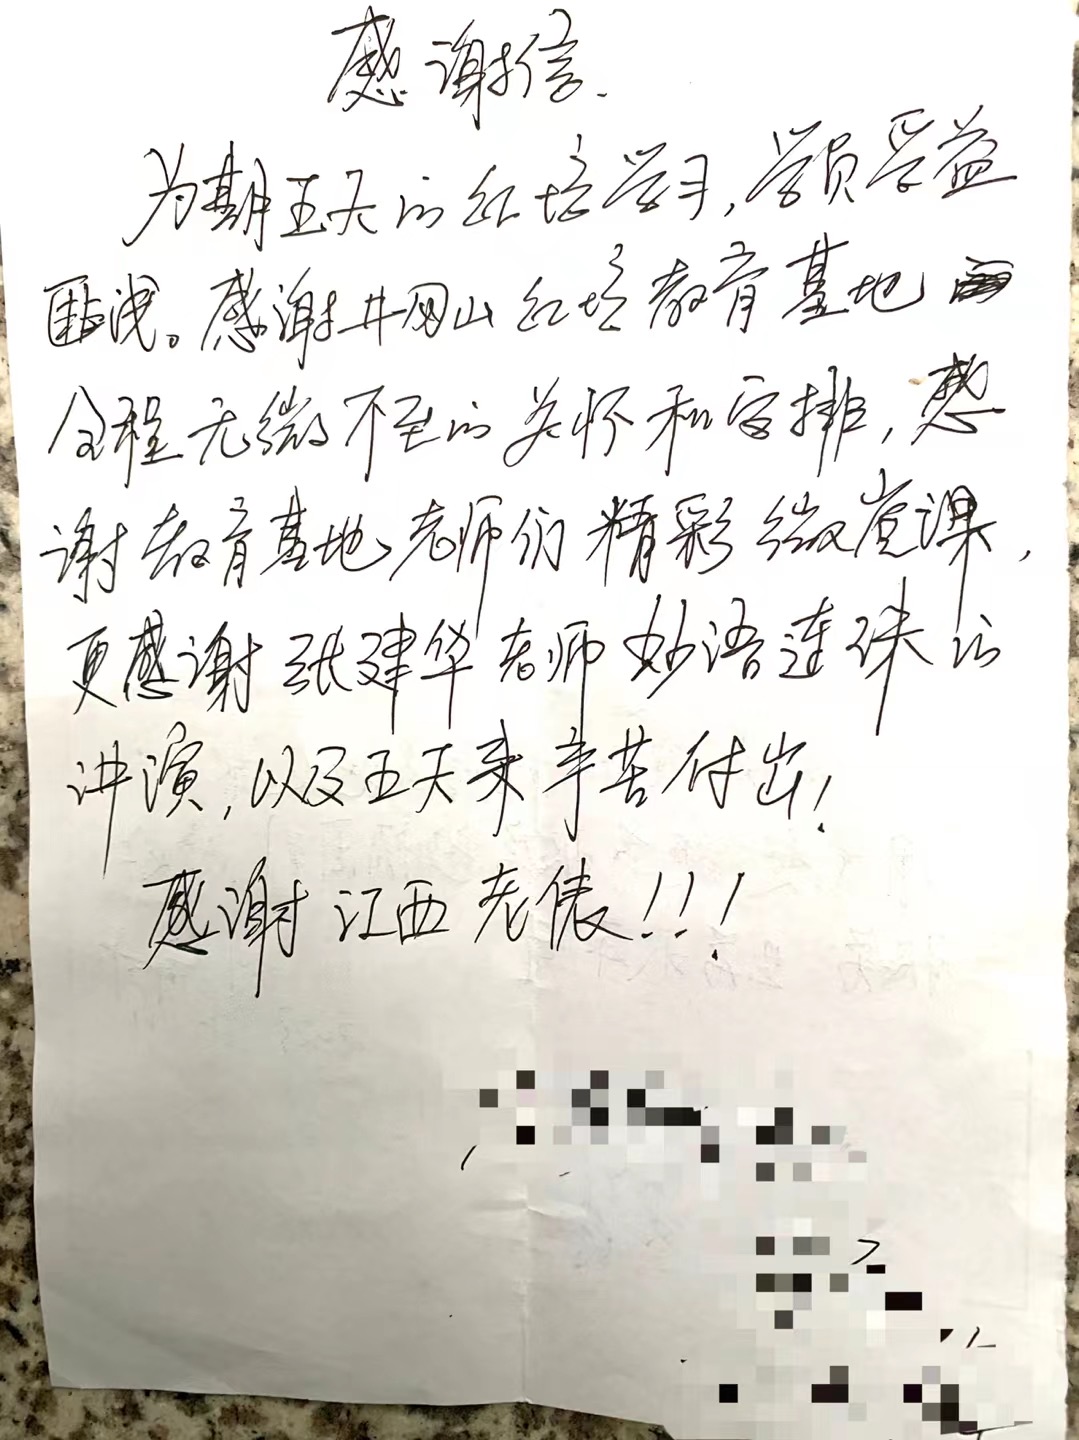 感谢信.
为期五天的红培学习,学员受益
匪浅。感谢井冈山红培教育基地
全程无微不至的关怀和安排,感
谢教育基地老师们精彩微党课,
更感谢张建华老师妙语连珠的
讲演,以及五天来辛苦付出!
感谢江西老俵!!!